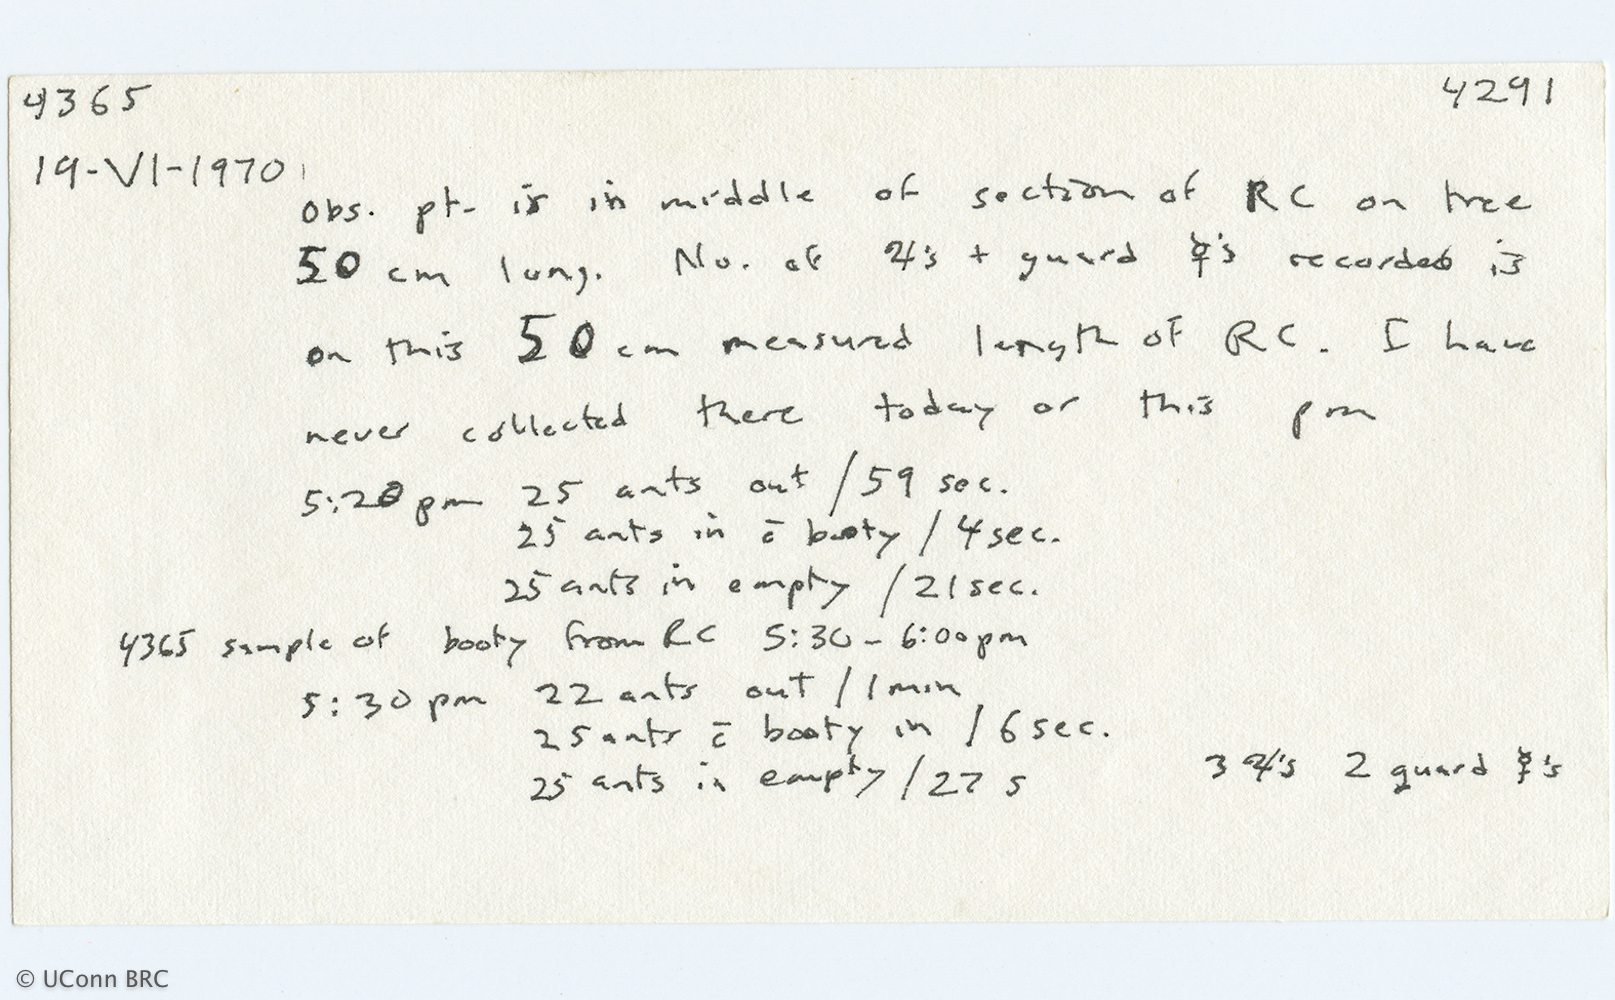 4365 4291
19-VI-1970
Obs. pt. is in middle of section of RC on tree
50 cm long. No. of ♃'s + guard ☿'s recorded is
on this 50 cm measured length of RC. I have
never collected there today or this pm
5:20 pm 25 ants out /59 sec.
25 ants in c̄ booty / 4 sec.
25 ants in empty /21 sec.
4365 sample of booty from RC 5:30 - 6:00 pm
5:30 pm 22 ants out /1 min
25 ants c̄ booty in / 6 sec.
25 ants in empty /27 s 3 ♃'s 2 guard ☿'s
© UConn BRC